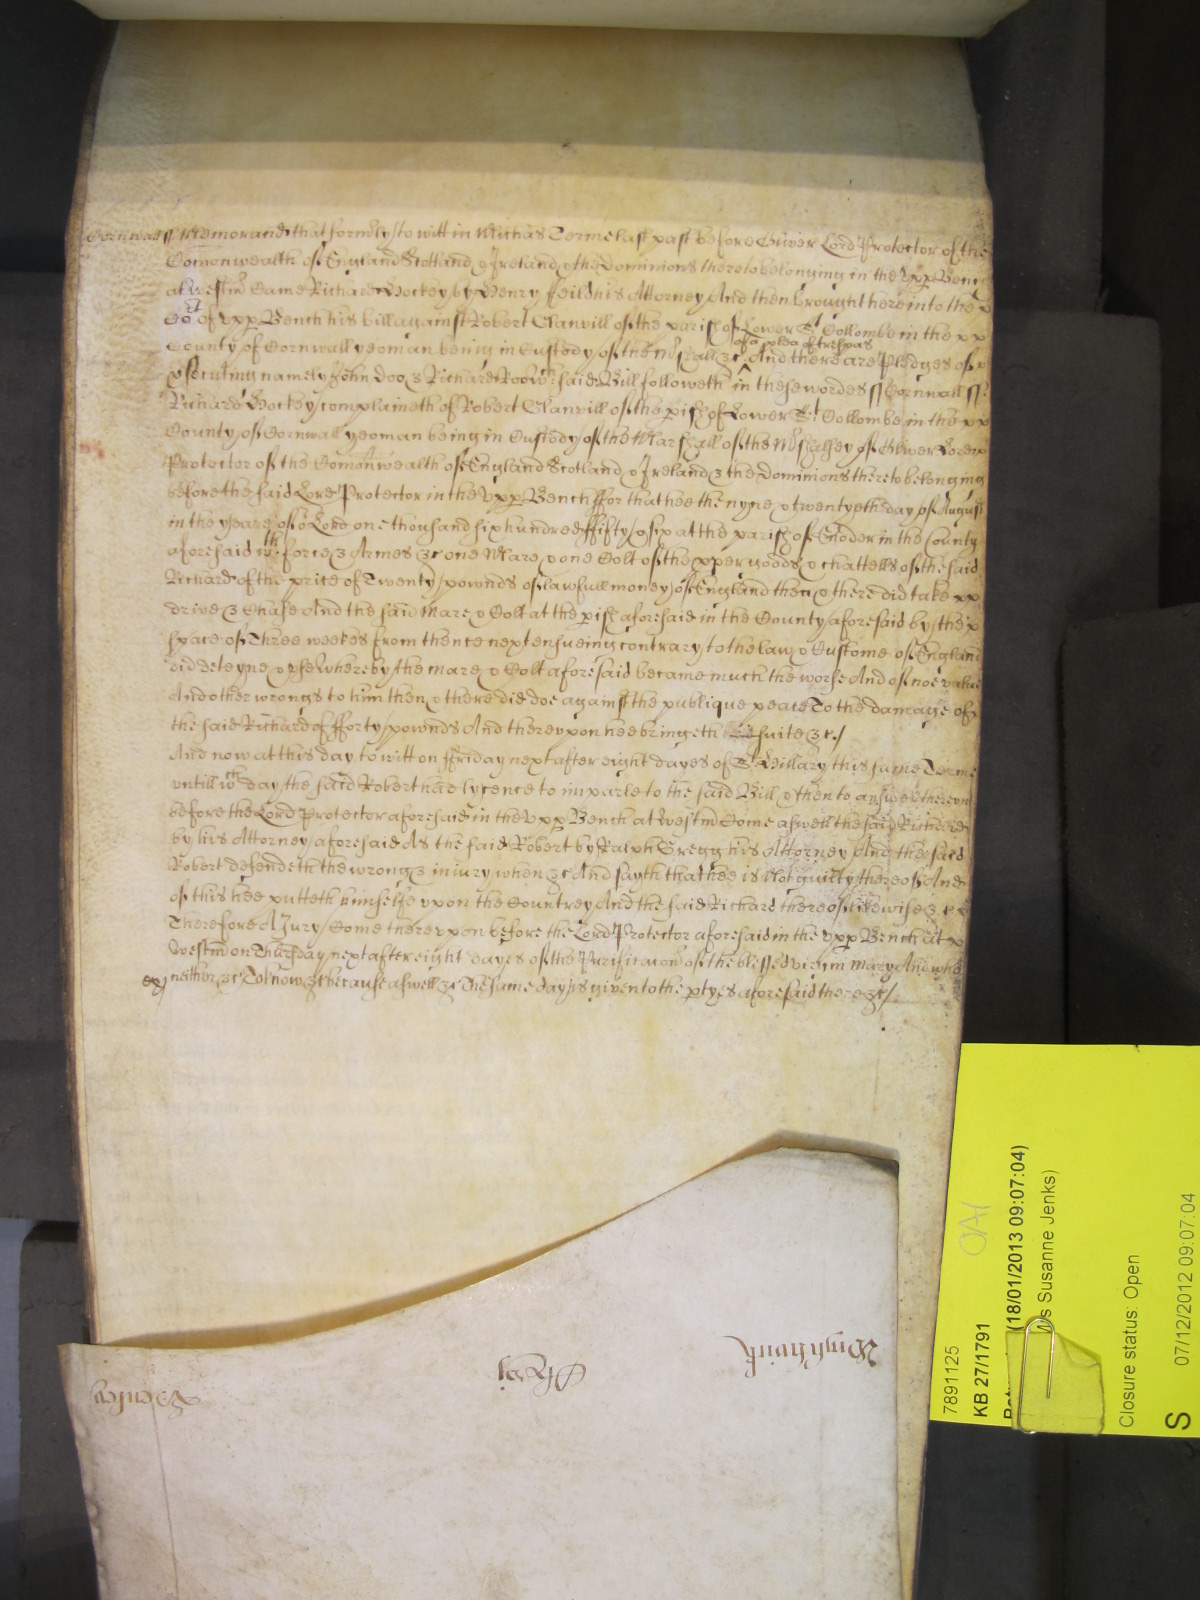 Cornwall ss Memorand that formly to witt in Michas Terme last past before Oliver Lord Protector of the
Comonwealth of England Scotland & Ireland & the Dominions thereto belonging in the Upp Bench
at Westm Came Richard Hockey by Henry Feild his Attorney And then brought here into the
Cot of Upp Bench his bill against Robert Glanvill of the parish of Lower St Collombe in the
of a plea of trespas
County of Cornwall yeoman being in Custody of the Mshall &c ^ And there are Pledges of
psecuting namely John Doo & Richard Roo Wch said Bill followeth in these wordes ss Cornwall ss
Richard Hockey complaineth of Robert Glanvill of the pish of Lower St Collombe in the
County of Cornwall yeoman being in Custody of the Marshall of the Mshalsey of Oliver Lord
Protector of the Comonwealth of England Scotland & Ireland & the Dominions thereto belonging
before the said Lord Protector in the Upp Bench ffor that hee the nyne & twentyeth day of August
in the yeare of or Lord one thousand six hundred ffifty & six at the parish of Enoder in the County
aforesaid wth force & Armes &c one Mare & one Colt of the pper goods & chattells of the said
Richard of the price of Twenty pownds of lawfull money of England then & there did take
drive & Chase And the said Mare & Colt at the pish aforesaid in the County aforesaid by the
space of Three weekes from thence next ensueing contrary to the law & Custome of England
did deteyne & use whereby the mare & Colt aforesaid became much the worse And of noe value
And other wrongs to him then & there did doe against the publique peace To the damage of
the said Richard of fforty pownds And thereupon hee bringeth suite &c./
And now at this day to witt on ffriday next after eight dayes of St Hillary this same Terme
untill wch day the said Robert had lycence to imparle to the said Bill & then to answer thereon
before the Lord Protector aforesaid in the Upp Bench at Westm Come aswell the said Richard
by his Attorney aforesaid As the said Robert by Ralph Gregg his Attorney And the said
Robert defendeth the wrong & iniury when &c And sayth that hee is Not guilty thereof And
of this hee putteth himselfe upon the Countrey And the said Richard thereof likewise &c
Therefore A Jury Come thereupon before the Lord Protector aforesaid in the Upp Bench at
Westm on Thursday next after eight dayes of the Purificacon of the blessed virgin Mary And who
neither &c To know &c because aswell &c The same day is given to the ptyes aforesaid there &c/
7891125
KB 27/1791
(18/01/2013 09:07:04)
s Susanne Jenks)
Closure status: Open
S
07/12/2012 09:07:04